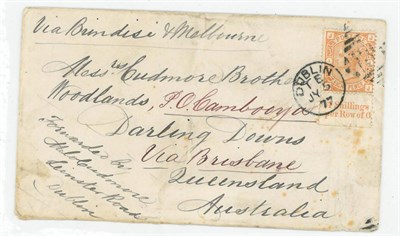 Via Brindisi & Melbourne
Messrs Cudmore Brothe
Woodlands, P.O. Cambooya
Darling Downs
Via Brisbane
Queensland
Australia
Forwarded by
Leinster Road
Dublin
DUBLIN
JY 5
77
Shillings
per Row of